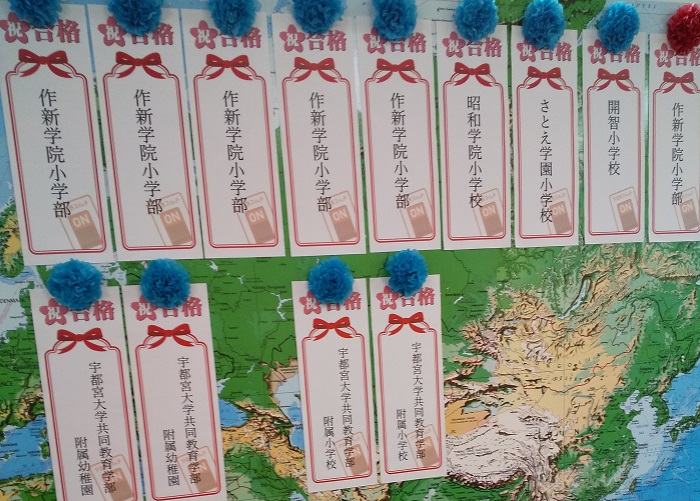 祝合格
作新学院小学部
ON
祝合格
作新学院小学部
ON
祝合格
作新学院小学部
ON
祝合格
作新学院小学部
ON
祝合格
作新学院小学部
ON
祝合格
昭和学院小学校
ON
祝合格
さとえ学園小学校
ON
祝合格
開智小学校
ON
祝合格
作新学院小学部
ON
祝合格
宇都宮大学共同教育学部
附属幼稚園
祝合格
宇都宮大学共同教育学部
附属幼稚園
祝合格
宇都宮大学共同教育学部
附属小学校
祝合格
宇都宮大学共同教育学部
附属小学校